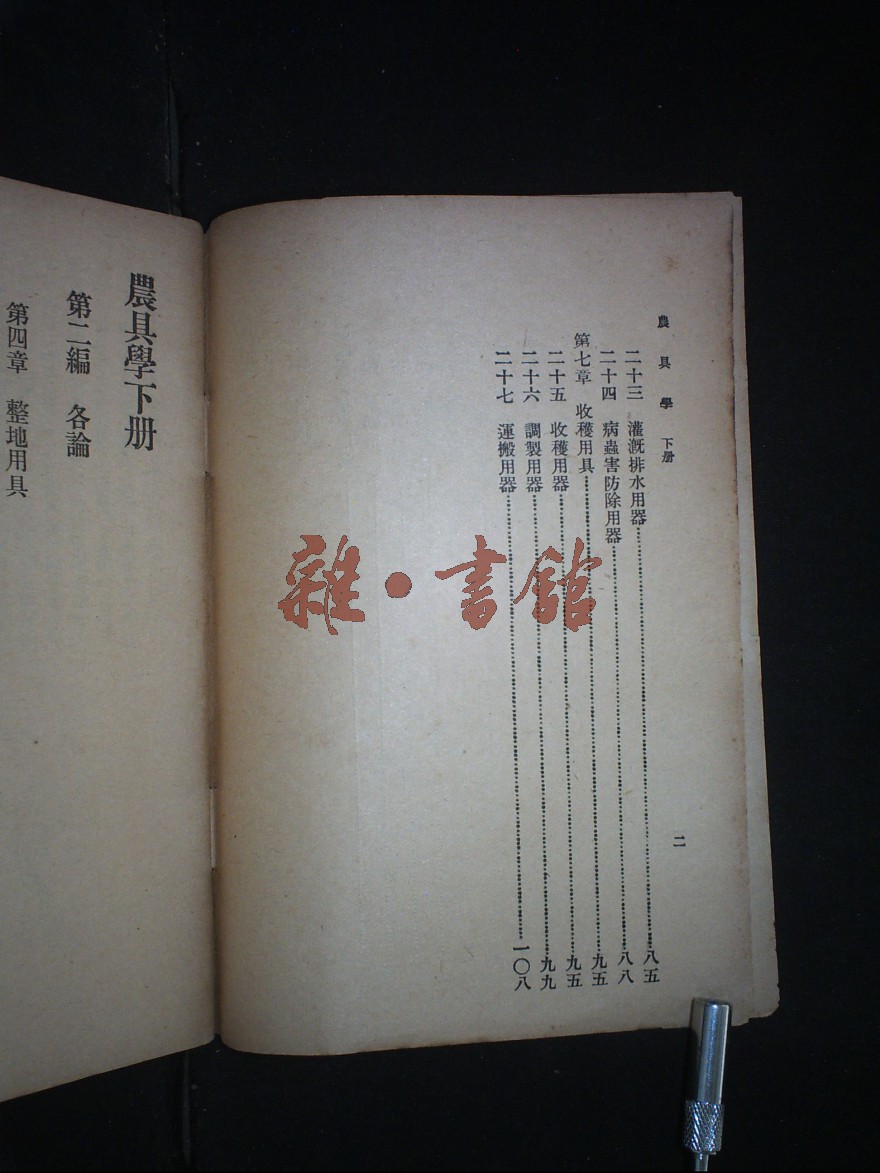 農具學 下册
二
二十三 灌漑排水用器……八五
二十四 病蟲害防除用器……八八
第七章 收穫用具……九五
二十五 收穫用器……九五
二十六 調製用器……九九
二十七 運搬用器……一〇八
農具學下册
第二編 各論
第四章 整地用具
雜·書館